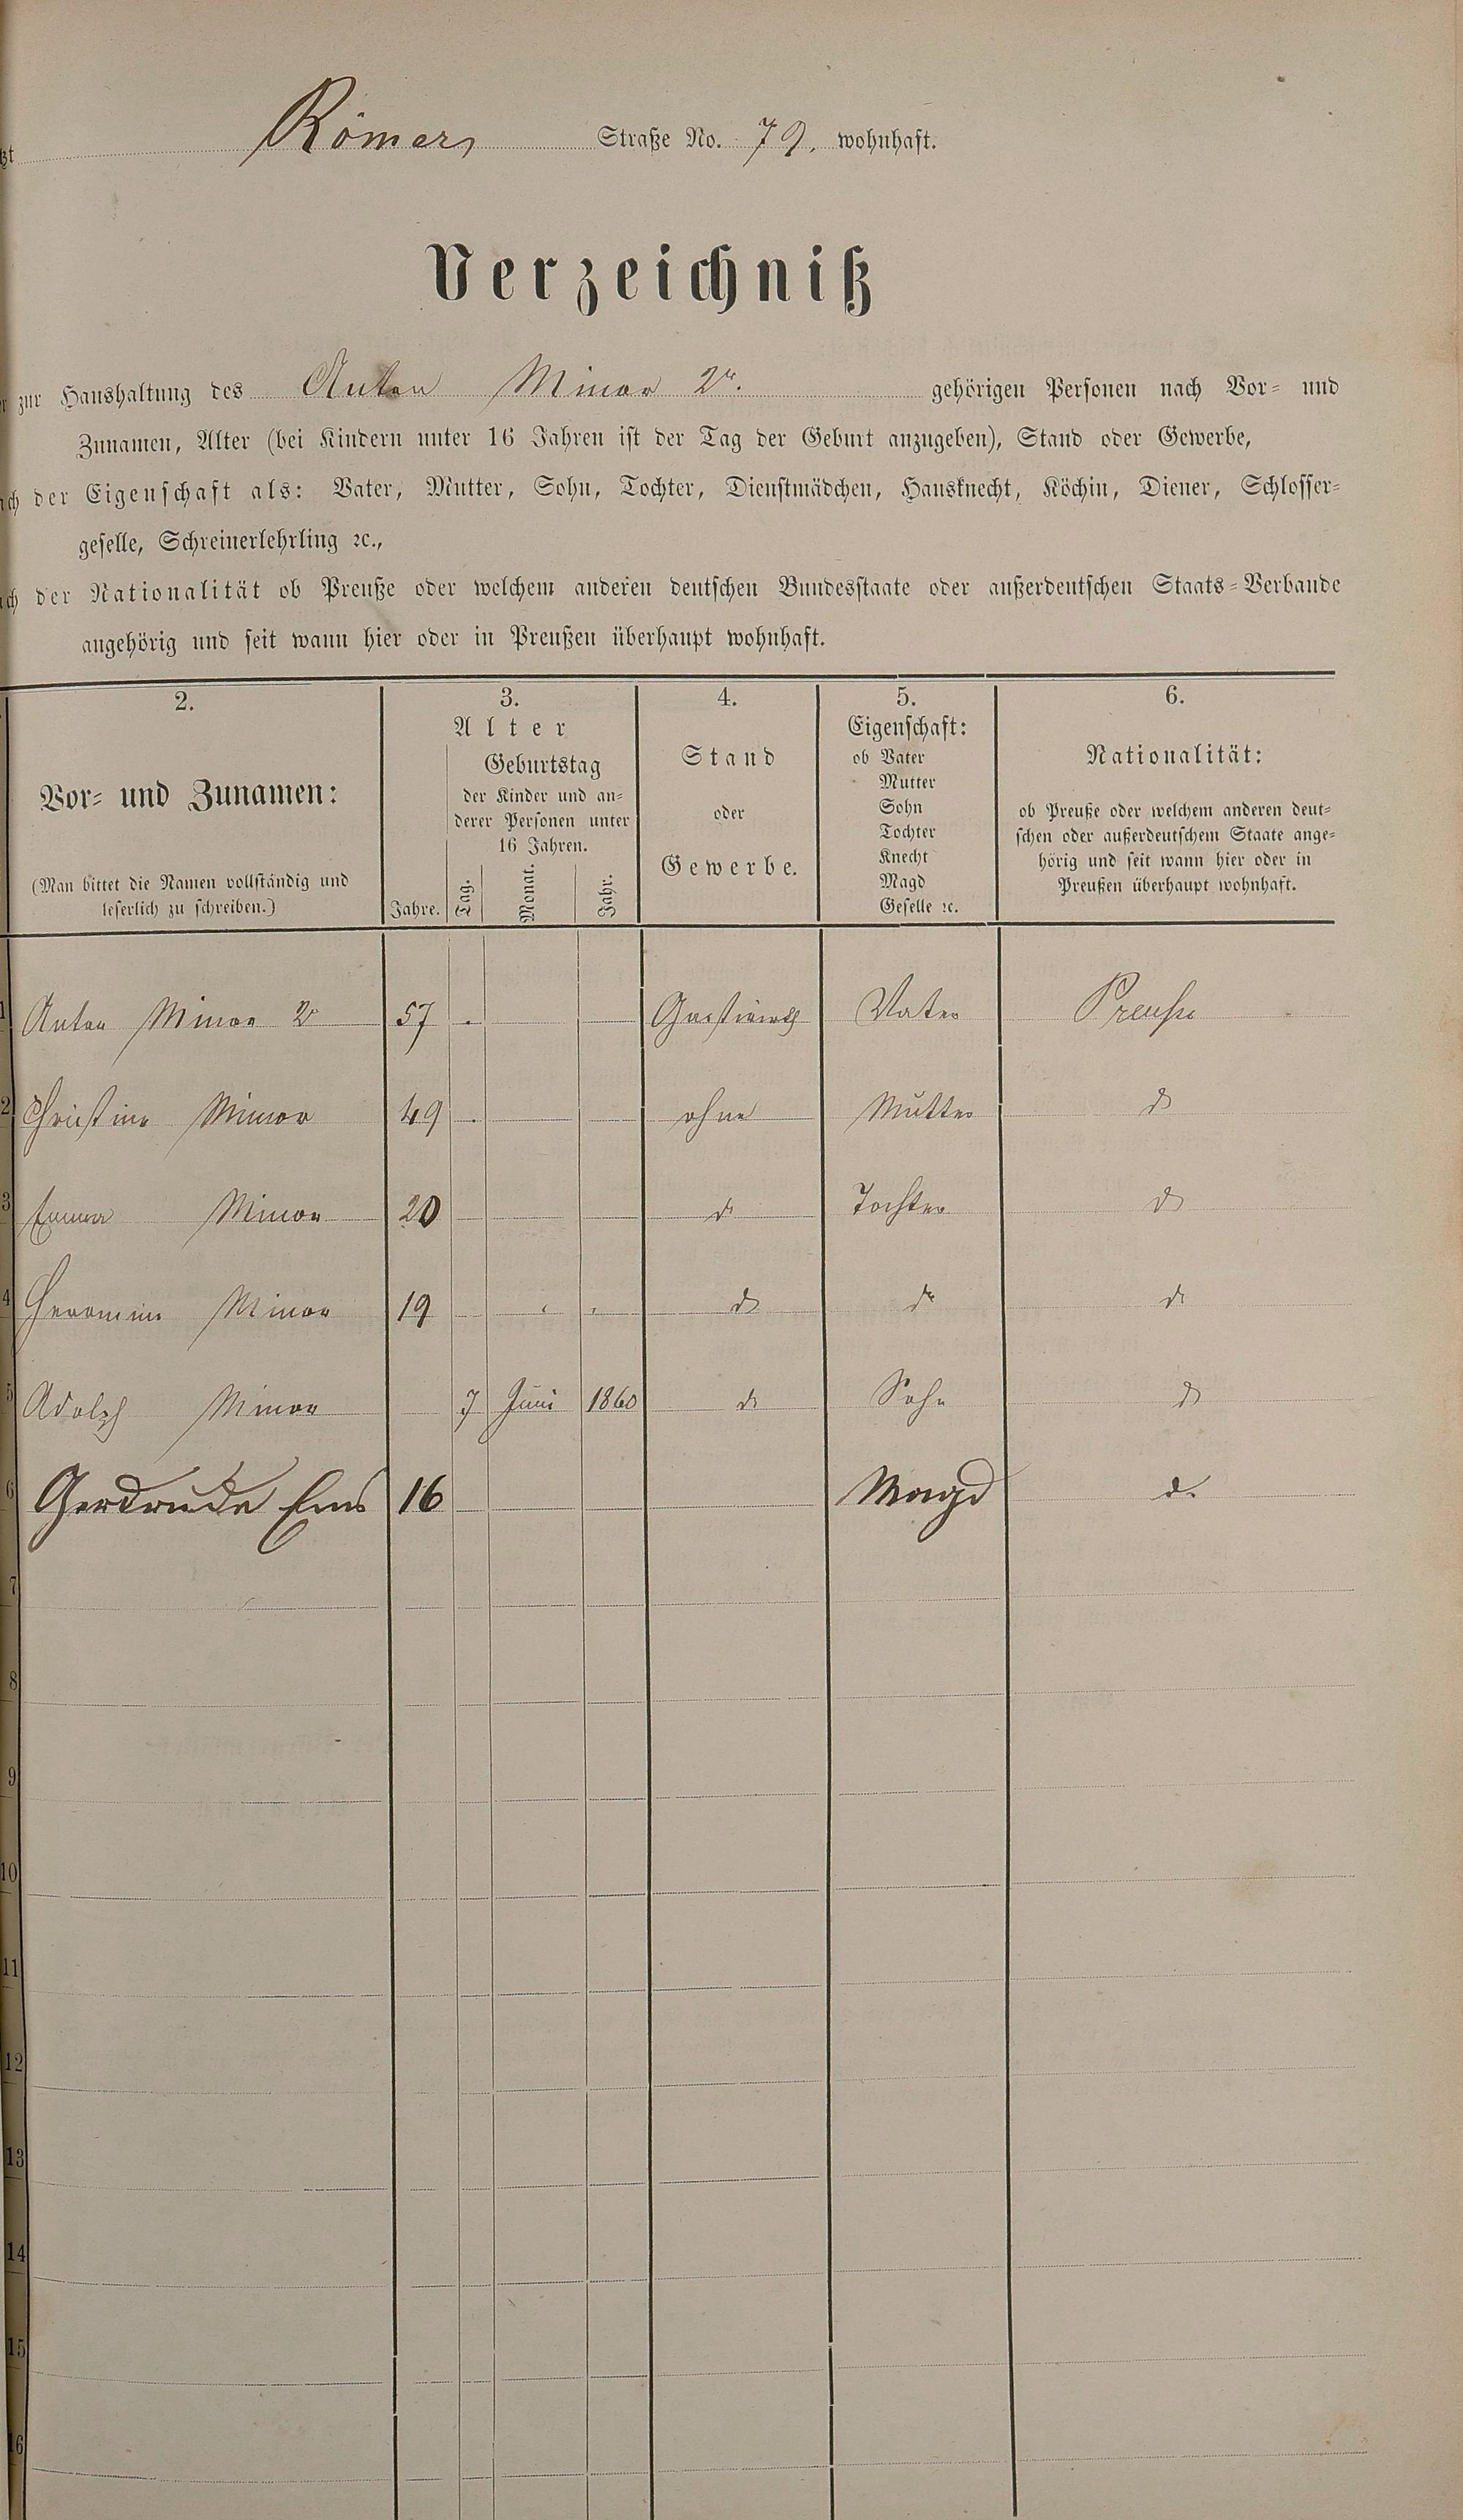 Römer Straße No. 79. wohnhaft.
Verzeichniß
zur Haushaltung des Anton Minor 2r. gehörigen Personen nach Vor- und
Zunamen, Alter (bei Kindern unter 16 Jahren ist der Tag der Geburt anzugeben), Stand oder Gewerbe,
der Eigenschaft als: Vater, Mutter, Sohn, Tochter, Dienstmädchen, Hausknecht, Köchin, Diener, Schlosser-
geselle, Schreinerlehrling ꝛc.,
der Nationalität ob Preuße oder welchem anderen deutschen Bundesstaate oder außerdeutschen Staats-Verbande
angehörig und seit wann hier oder in Preußen überhaupt wohnhaft.
2. 3. 4. 5. 6.
Vor- und Zunamen:
(Man bittet die Namen vollständig und
leserlich zu schreiben.)
Alter
Jahre.
Geburtstag
der Kinder und an-
derer Personen unter
16 Jahren.
Tag. Monat. Jahr.
Stand
oder
Gewerbe.
Eigenschaft:
ob Vater
Mutter
Sohn
Tochter
Knecht
Magd
Geselle ꝛc.
Nationalität:
ob Preuße oder welchem anderen deut-
schen oder außerdeutschem Staate ange-
hörig und seit wann hier oder in
Preußen überhaupt wohnhaft.
1 Anton Minor 2r 57 Gastwirth Vater Preuße
2 Christine Minor 49 ohne Mutter do
3 Emma Minor 20 do Tochter do
4 Minor 19 do do do
5 Adolph Minor 7 Juni 1860 do Sohn do
6 Gerdrude Ems 16 Magd do
7
8
9
10
11
12
13
14
15
16